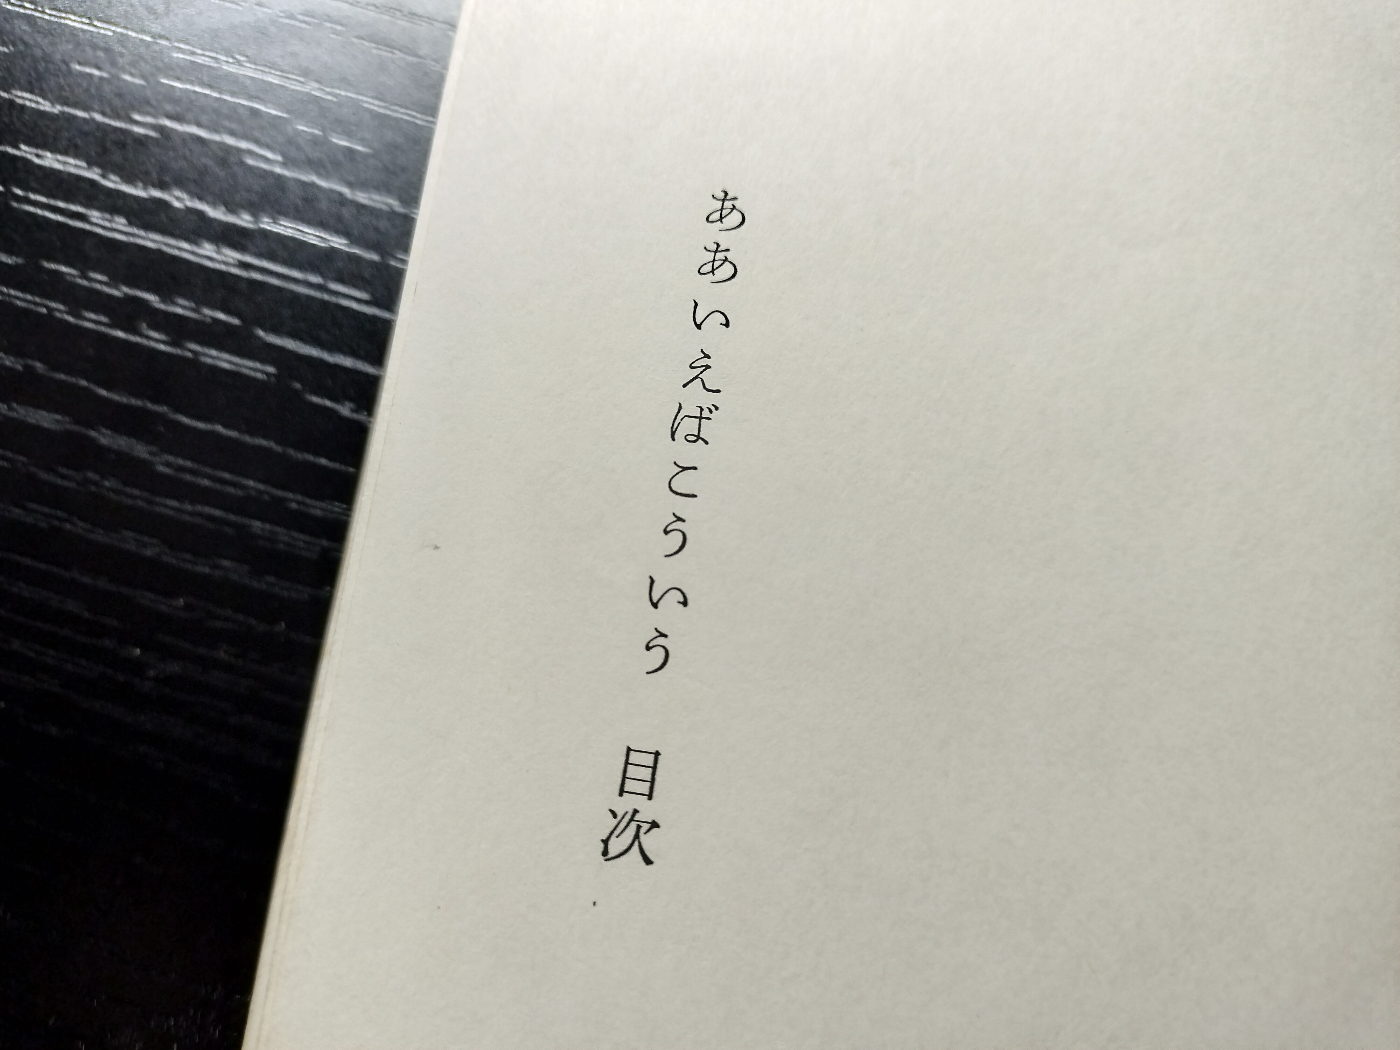 ああいえばこういう　目次